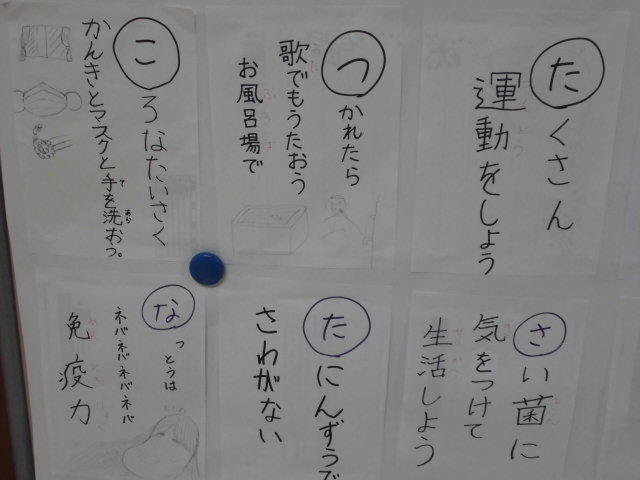 たくさん
運動をしよう
つかれたら
歌でもうたおう
お風呂場で
ころなたいさく
かんきとマスクと手を洗おっ。
て
あら
さい菌に
気をつけて
生活しよう
たにんずうで
さわがない
なっとうは
ネバネバネバネバ
免疫力